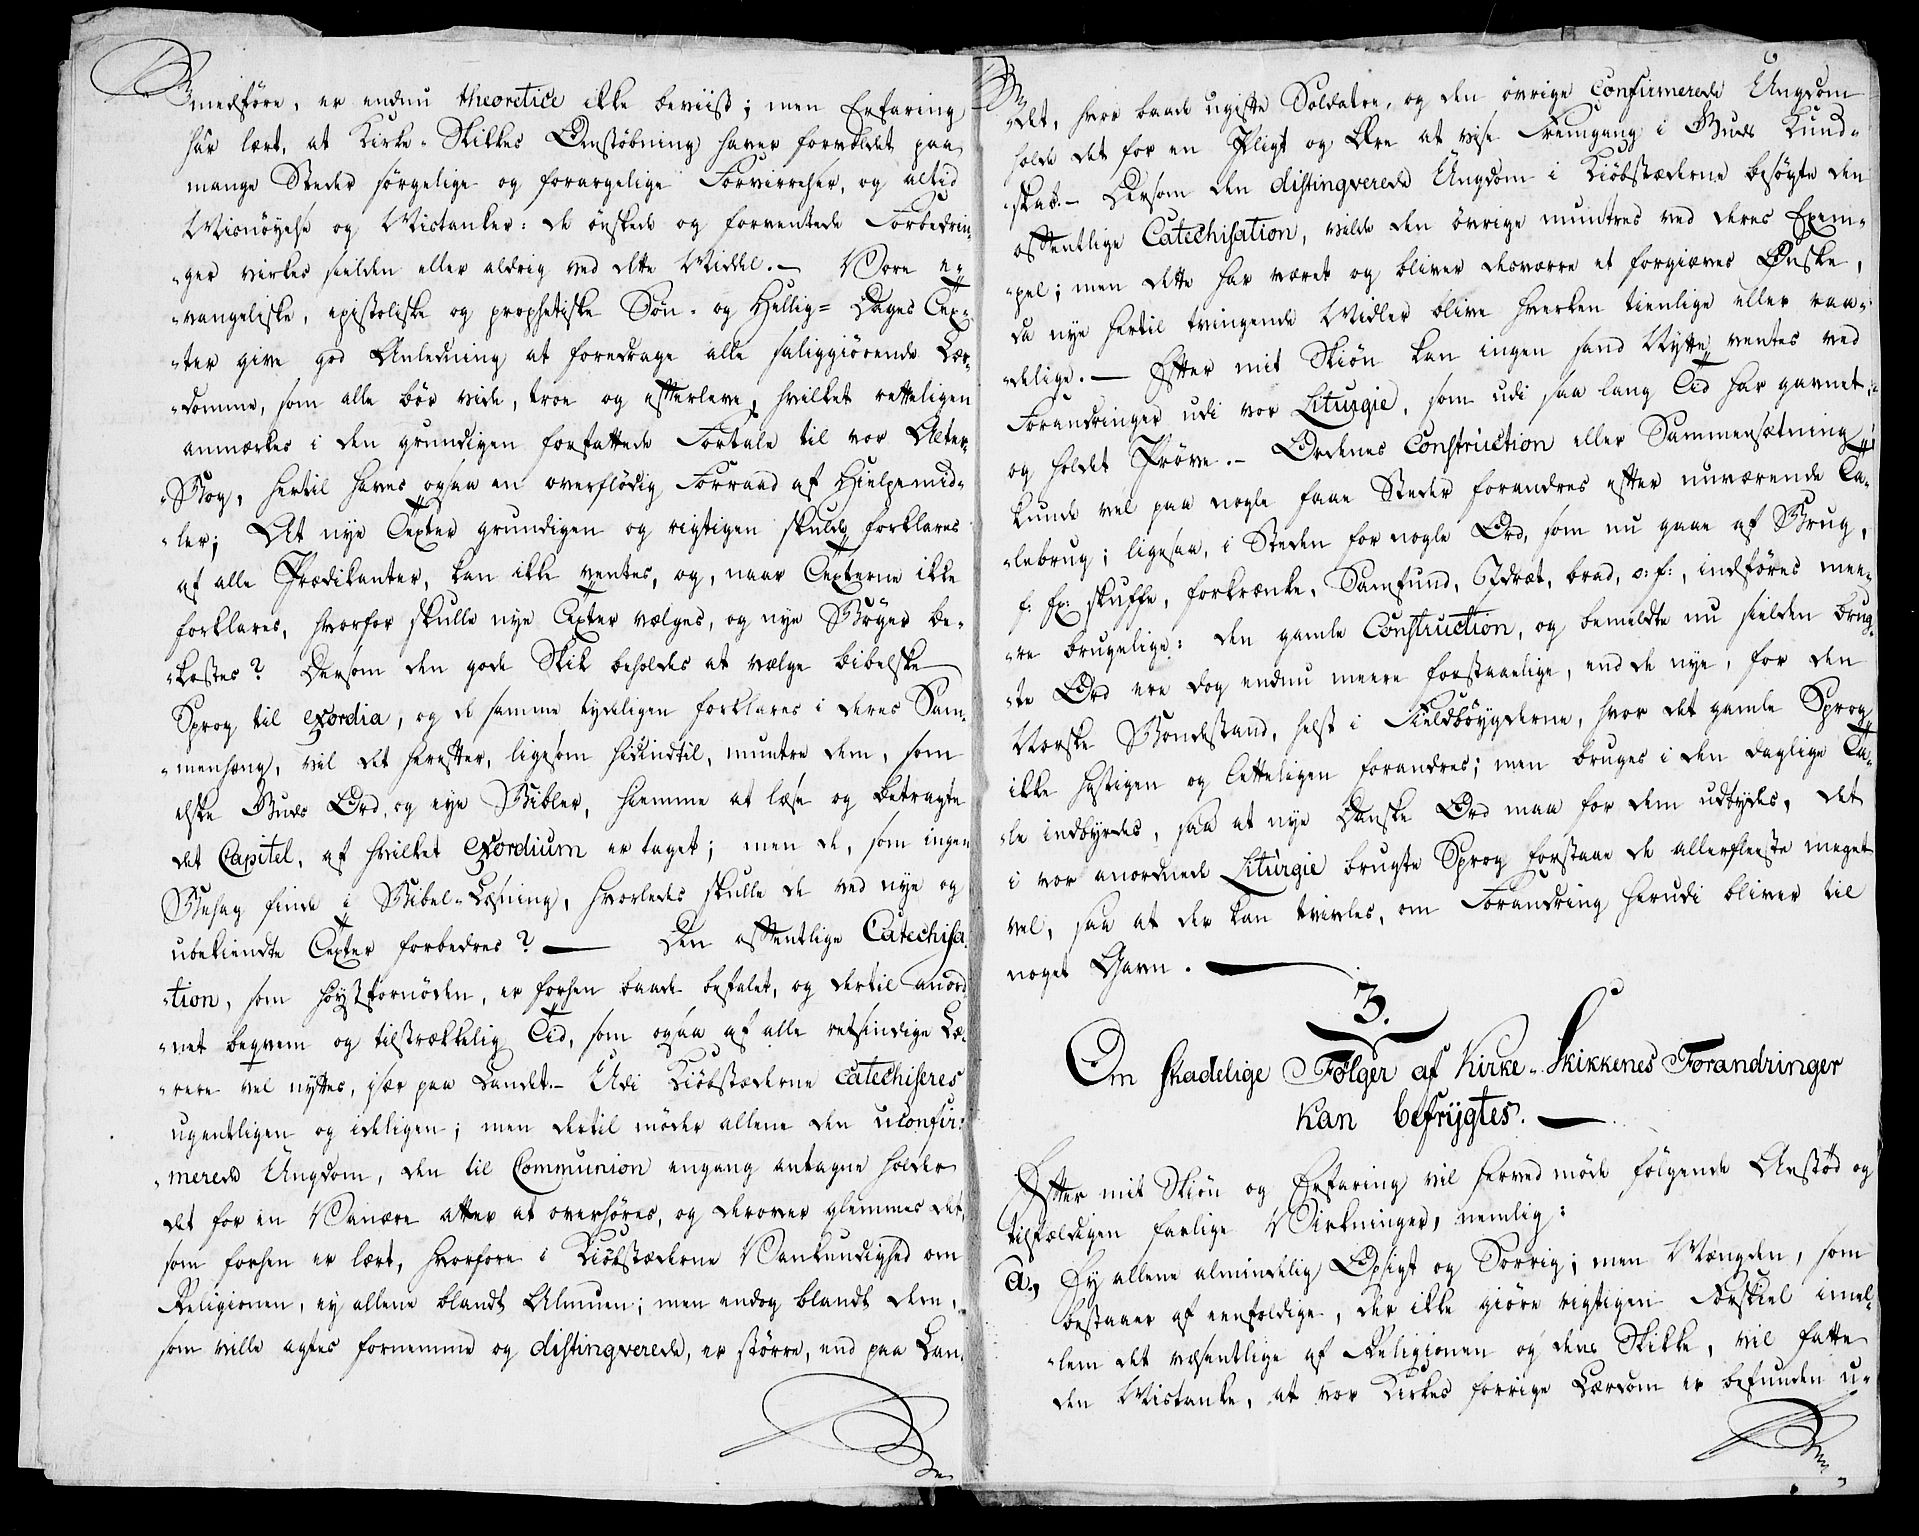 medføre, er endnu theoretice ikke beviist; men Erfaring
har lært, at Kirke-Skikkes Omstøbning haver forvoldet paa
mange Steder sørgelige og forargelige Forvirrelser, og altid
Misnøyelse og Mistanker: de ønskede og forventede Forbedrin-
-ger virkes sielden eller aldrig ved dette Middel. — Vore e-
-vangeliske, epistoliske og prophetiske Søn- og Hellig= Dages Tex-
-ter give god Anledning at foredrage alle saliggiørende Lær-
-domme, som alle bør vide, troe og efterleve, hvilket retteligen
anmærkes i den grundigen forfattede Fortale til vor Alter-
-Bog, hertil haves ogsaa en overflødig Forraad af Hielpemid-
-ler; At nye Texter grundigen og rigtigen skulde forklares
af alle Prædikanter, kan ikke ventes, og, naar Texterne ikke
forklares, hvorfor skulle nye Texter vælges, og nye Bøger be-
-kostes? Dersom den gode Skik beholdes at vælge bibelske
Sprog til exordia, og de samme tydeligen forklares i deres Sam-
-menhæng, vil det herefter, ligesom hidindtil, muntre dem, som
elske Guds Ord, og eye Bibler, hiemme at læse og betragte
det Capitel, af hvilket Exordium er taget; men de, som ingen
Behag finde i Bibel-Læsning, hvorledes skulle de ved nye og
ubekiendte Texter forbedres? — Den offentlige Catechisa-
-tion, som høystfornøden, er forhen baade befalet, og dertil anord-
-net beqvem og tilstrækkelig Tid, som ogsaa af alle retsindige Læ-
-rere vel nyttes, især paa Landet. — Udi Kiøbstæderne catechiseres
ugentligen og ideligen; men dertil møder allene den uconfir-
-merede Ungdom, den til Communion engang antagne holder
det for en Vanære atter at overhøres, og derover glemmes det,
som forhen er lært, hvorfore i Kiøbstæderne Vankundighed om
Religionen, ey allene blandt Almuen; men endog blandt dem,
som ville agtes fornemme og distingverede, er større, end paa Lan-
-det, hvor baade ugifte Soldater, og den øvrige Confirmerede Ungdom
holde det for en Pligt og Ære at vise Fremgang i Guds Kund-
-skab. — Dersom den distingverede Ungdom i Kiøbstæderne besøgte den
offentlige Catechisation, vilde den øvrige muntres ved deres Exem-
-pel; men dette har været og bliver desværre et forgiæves Ønske,
da nye hertil tvingende Midler blive hverken tienlige eller raa-
-delige. — Efter mit Skiøn kan ingen sand Nytte ventes ved
Forandringer udi vor Liturgie, som udi saa lang Tid har gavnet,
og holdt Prøve. — Ordenes Construction eller Sammensætning
kunde vel paa nogle faae Steder forandres efter nuværende Ta-
-lebrug; ligesaa, i Steden for nogle Ord, som nu gaae af Brug,
f: Ex: skuffe, forkrænke, Samfund, Idræt, brad, o: f:, indføres mee-
-re brugelige: den gamle Construction, og bemeldte nu sielden brug-
-te Ord ere dog endnu meere forstaaelige, end de nye, for den
Norske Bondestand, helst i Fieldbøygderne, hvor det gamle Sprog
ikke hastigen og letteligen forandres; men bruges i den daglige Ta-
-le indbyrdes, saa at nye Danske Ord maa for dem udtydes, det
i vor anordnede Liturgie brugte Sprog forstaae de allerfleeste meget
vel, saa at der kan tvivles, om Forandring herudi bliver til
noget Gavn. —
3.
Om skadelige Følger af Kirke-Skikkenes Forandringer
kan befrygtes. —
Efter mit Skiøn og Erfaring vil herved møde følgende Anstød og
tilfældigen farlige Virkninger, nemlig:
a., Ey allene almindelig Opsigt og Sorrig; men Mængden, som
bestaaer af eenfoldige, der ikke giøre rigtigen Forskiel imel-
-lem det væsentlige af Religionen og dens Skikke, vil fatte
den Mistanke, at vor Kirkes forrige Lærdom er befunden u-